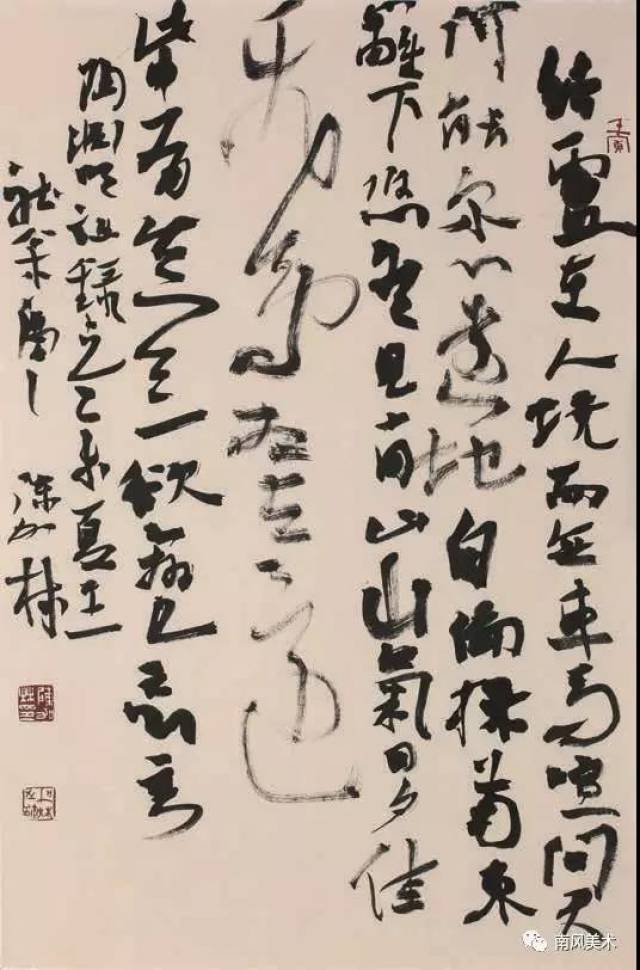 結廬在人境而無車馬喧問君
何能尔心遠地自偏採菊東
籬下悠然見南山山氣日夕佳
飛鳥相與還
此中有真意欲辨已忘言
陶淵明詩錄之乙未夏
陈加林
南风美术